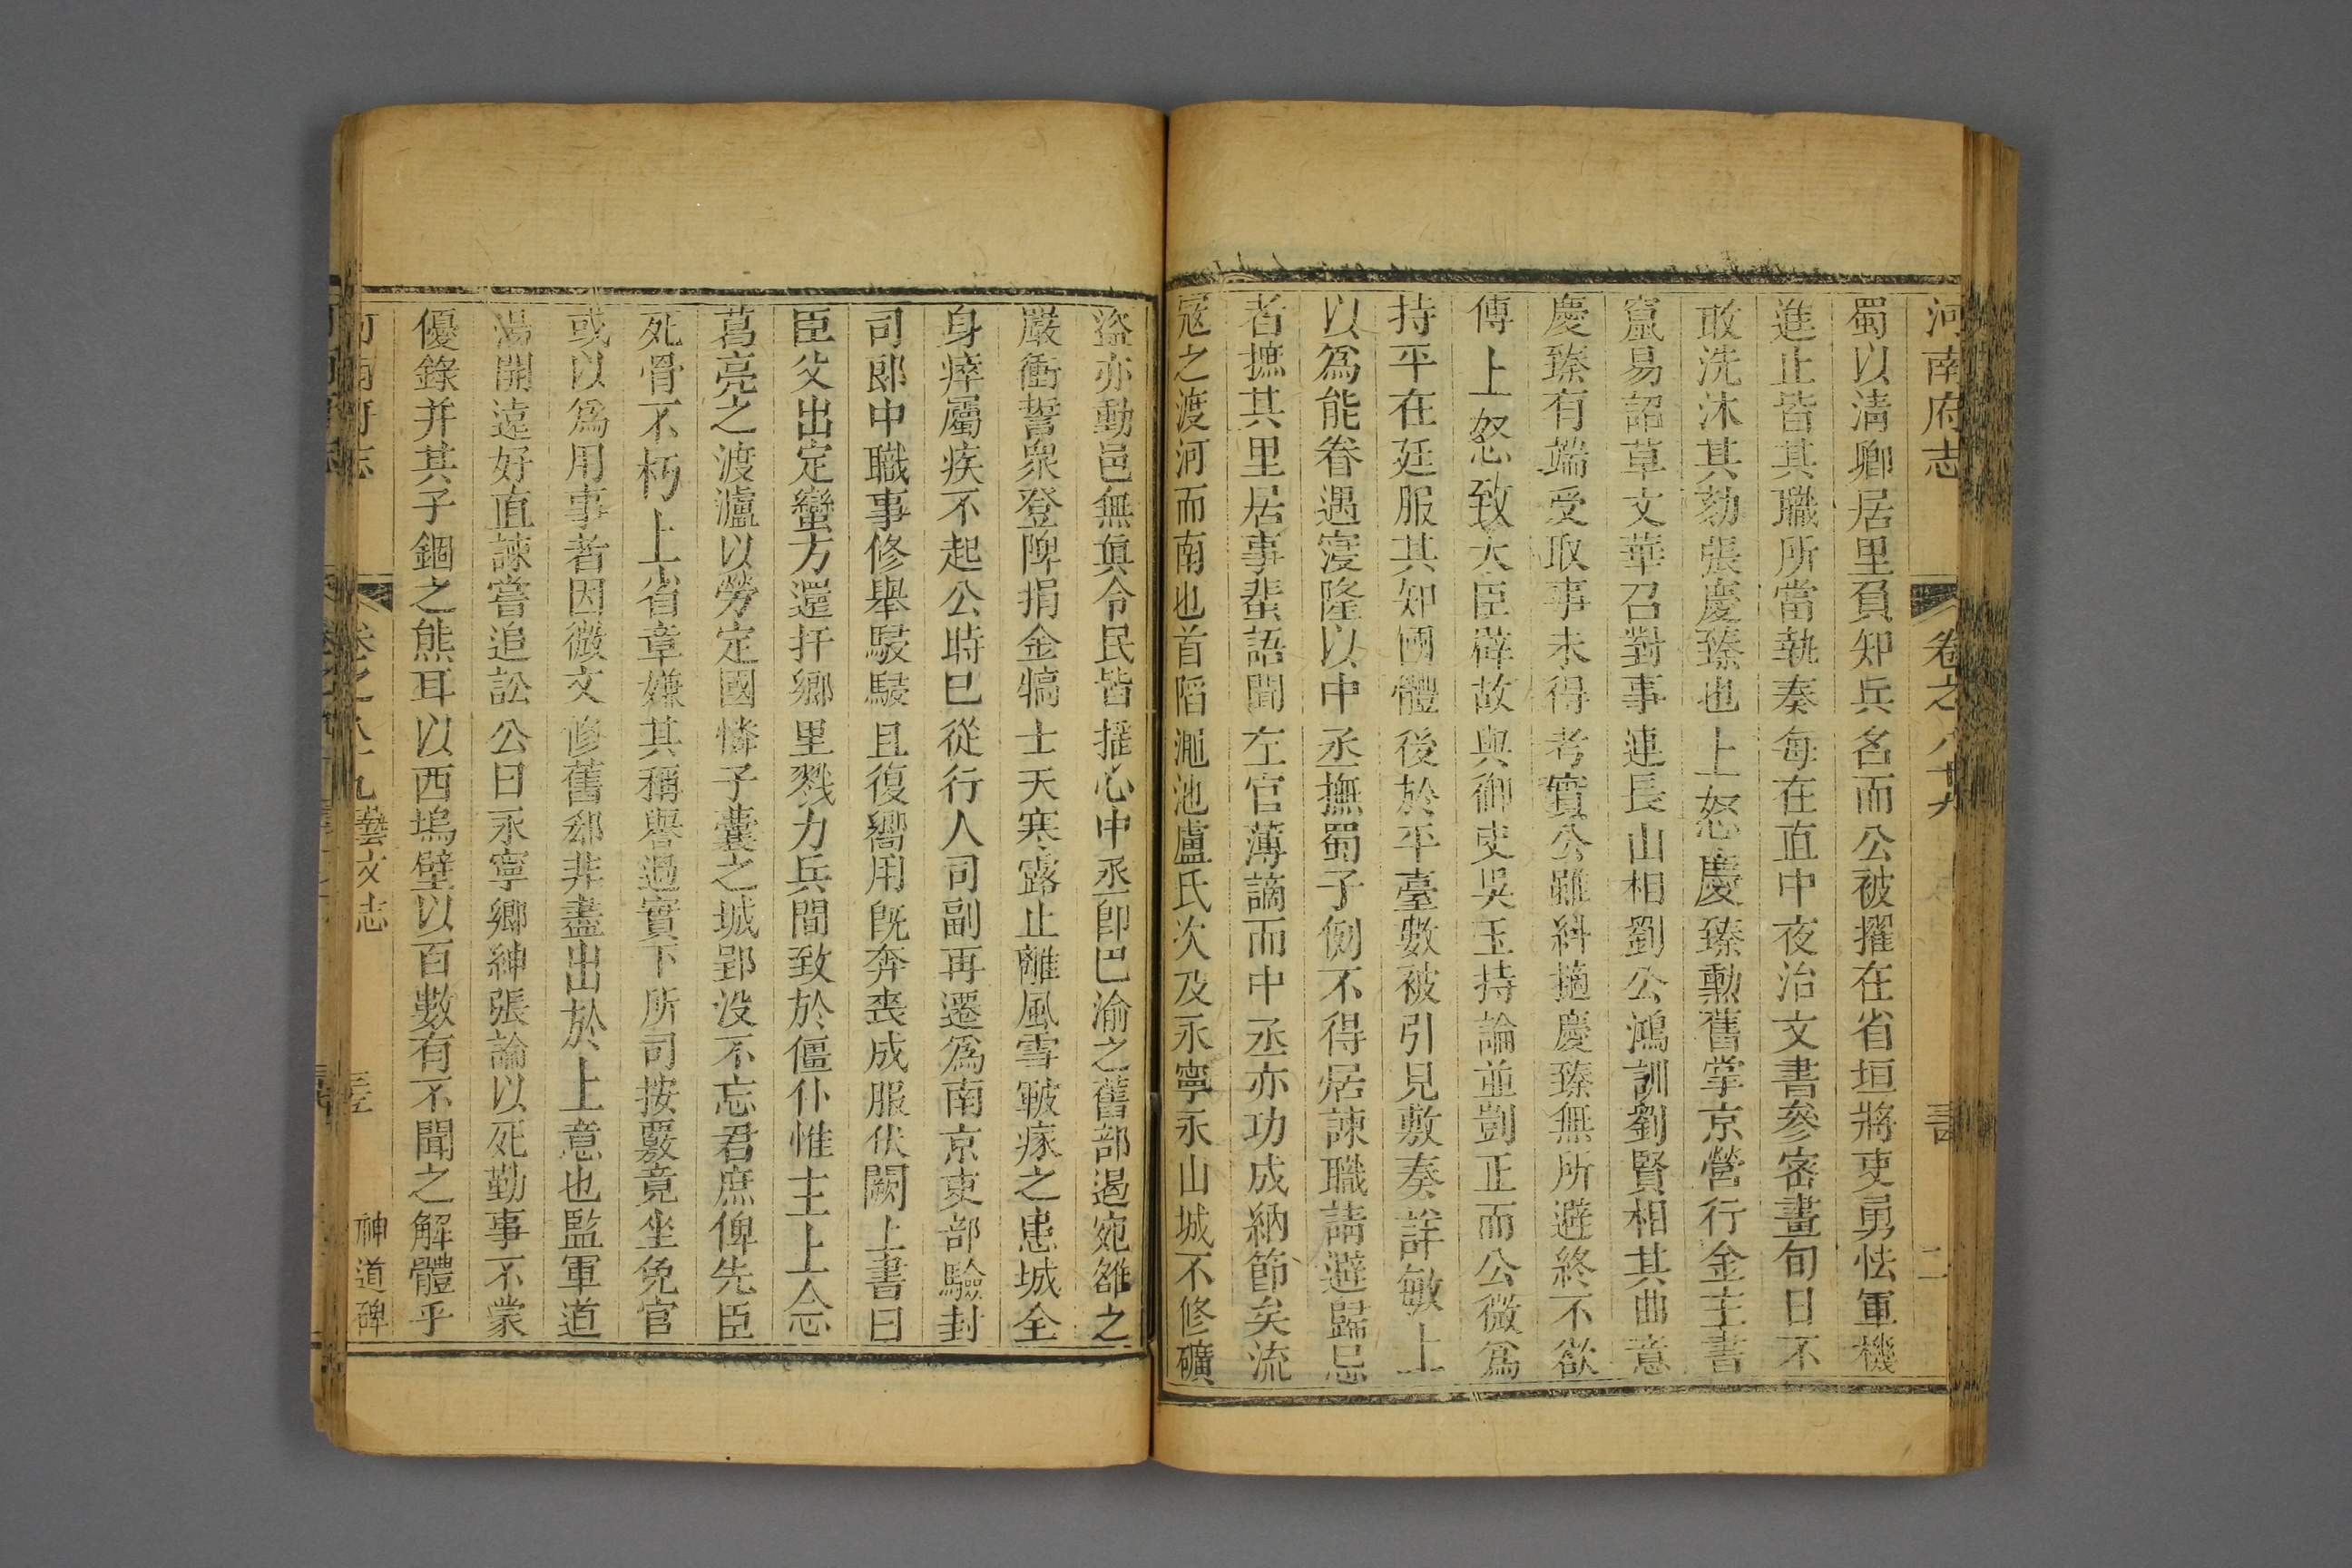 河南府志
卷之八十九
蜀以淸卿居里負知兵名而公被擢在省垣將吏勇怯軍機
進止皆其職所當執奏每在直中夜治文書參密畫旬日不
敢洗沐其劾張慶臻也上怒慶臻勳舊掌京營行金主書
竄易詔草文華召對事連長山相劉公鴻訓劉賢相其曲意
慶臻有端受取事未得考實公雖糾擿慶臻無所避終不欲
傅上怒致大臣辟故與御史吳玉持論並剴正而公微爲
持平在廷服其知國體後於平臺數被引見敷奏詳敏上
以爲能眷遇寖隆以中丞撫蜀子例不得居諫職請避歸忌
者摭其里居事蜚語聞左官薄謫而中丞亦功成納節矣流
寇之渡河而南也首陷澠池盧氏次及永寧永山城不修礦
盜亦動邑無眞令民皆摧心中丞卽巴渝之舊部遏宛雒之
嚴衝誓衆登陴捐金犒士天寒露止離風雪皸瘃之患城全
身瘁屬疾不起公時已從行人司副再遷爲南京吏部驗封
司郎中職事修舉駸駸且復嚮用旣奔喪成服伏闕上書曰
臣父出定蠻方還扞鄉里戮力兵間致於僵仆惟主上念
葛亮之渡瀘以勞定國憐子囊之城郢没不忘君庶俾先臣
死骨不朽上省章嫌其稱譽過實下所司按覈竟坐免官
或以爲用事者因微文修舊郤非盡出於上意也監軍道
湯開遠好直諫嘗追訟公曰永寧鄉紳張論以死勤事不蒙
優錄并其子錮之熊耳以西塢壁以百數有不聞之解體乎
河南府志
卷之八十九
藝文志
神道碑